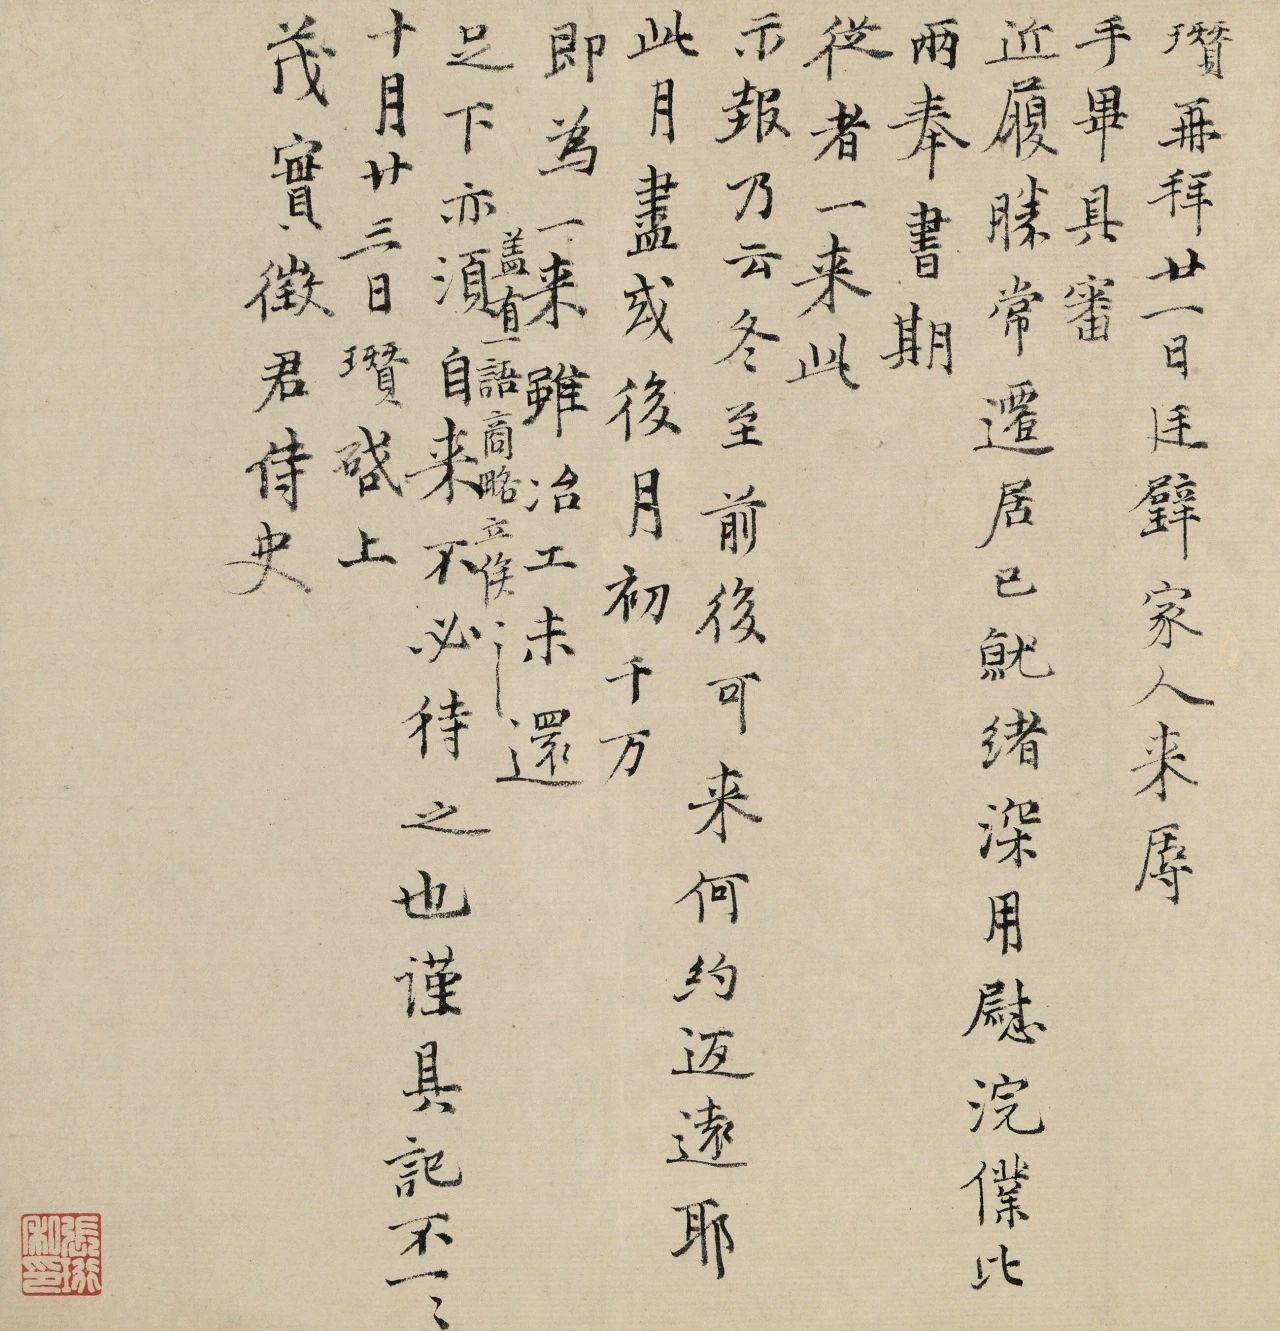 瓚再拜廿一日廷璧家人来辱
手畢具審
近履勝常遷居已就緒深用慰浣僕比
兩奉書期
從者一来此
示報乃云冬至前後可来何約迈遠耶
此月盡或後月初千万
即為一来雖冶工未還
蓋有一語商略立俟之
足下亦須自来不必待之也謹具記不一〻
十月廿三日瓚啓上
茂實徵君侍史